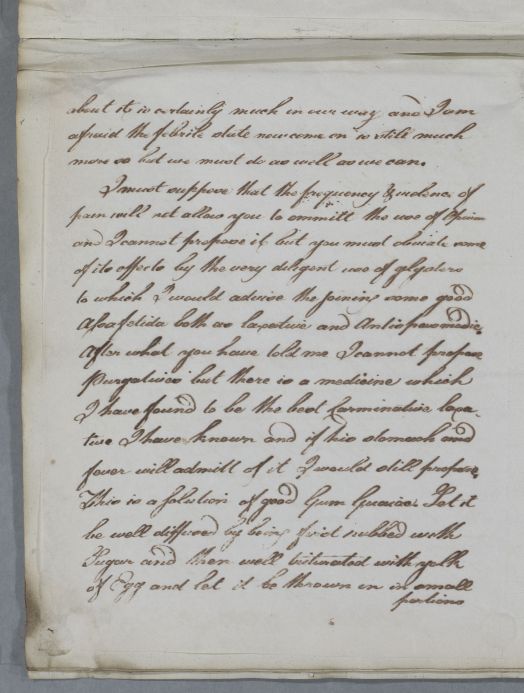 about it is certainly much in our way and I am
afraid the febrile state now come on is still much
more so but we must do as well as we can.
I must suppose that the frequency & violence of
pain will not allow you to ommitt the use of Opium
and I cannot propose it but you must obviate some
of its effects by the very diligent use of glysters
to which I would advise the joining some good
Asafetida both as laxative and Antispasmodic.
After what you have told me I cannot propose
Purgatives but there is a medicine which
I have found to be the best Carminative laxa-
tive I have known and if his stomach and
fever will admitt of it I would still propose.
This is a solution of good Gum Guaiac. Let it
be well diffused by being first rubbed with
Sugar and then well triturated with yolk
of Egg and let it be thrown in in small
portions